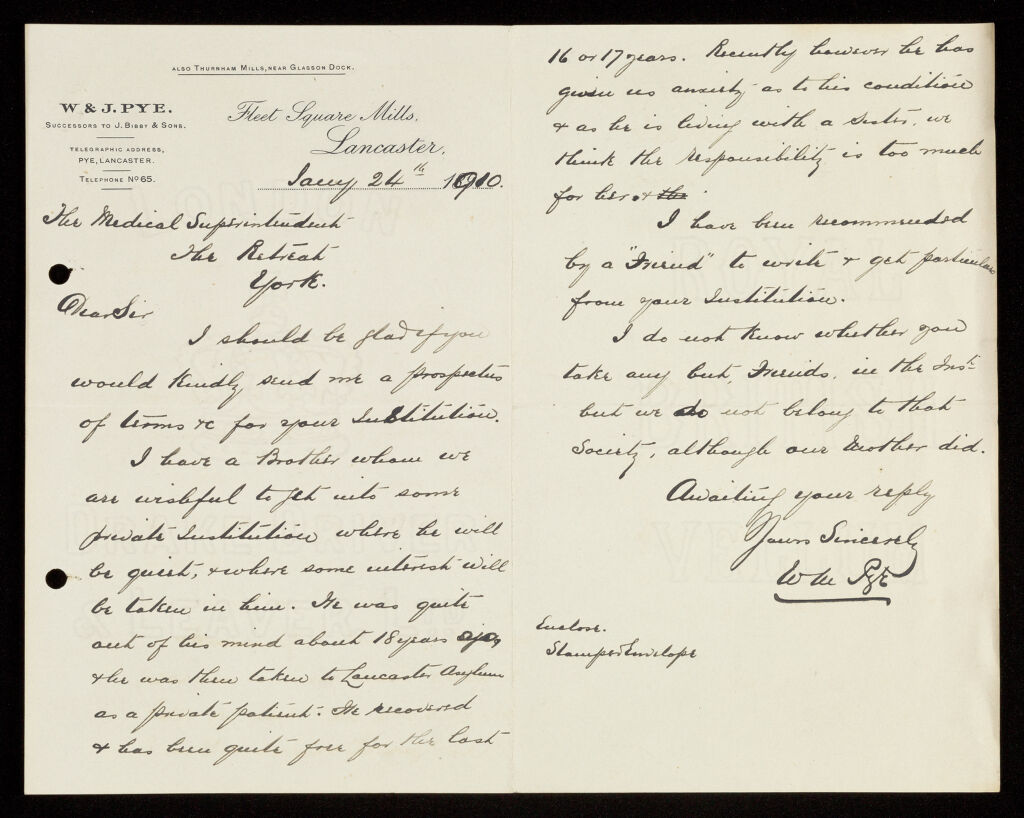 ALSO THURNHAM MILLS, NEAR GLASSON DOCK.
W & J. PYE.
SUCCESSORS TO J. BIBBY & SONS.
TELEGRAPHIC ADDRESS,
PYE, LANCASTER.
TELEPHONE No 65.
Fleet Square Mills,
Lancaster,
Jany 24th 1910.
The Medical Superintendent
The Retreat
York.
Dear Sir
I should be glad if you
would kindly send me a prospectus
of terms &c for your Institution.
I have a Brother whom we
are wishful to get into some
private Institution where he will
be quiet, & where some interest will
be taken in him. He was quite
out of his mind about 18 years ago,
& he was then taken to Lancaster Asylum
as a private patient. He recovered
& has been quite free for the last
16 or 17 years. Recently however he has
given us anxiety as to his condition
& as he is living with a sister, we
think the responsibility is too much
for her & the
I have been recommended
by a "Friend" to write & get particulars
from your Institution.
I do not know whether you
take any but, Friends, in the Inst:
but we do not belong to that
Society, although our Mother did.
Awaiting your reply
Yours Sincerely
Wm Pye
Enclose.
Stamped Envelope